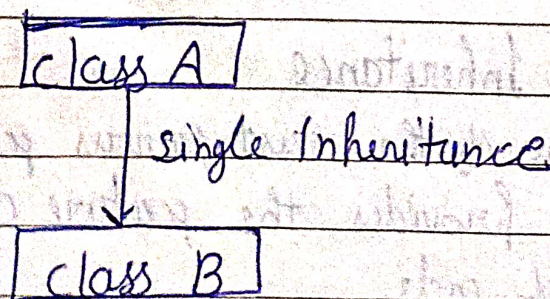 class A
single Inheritance
class B